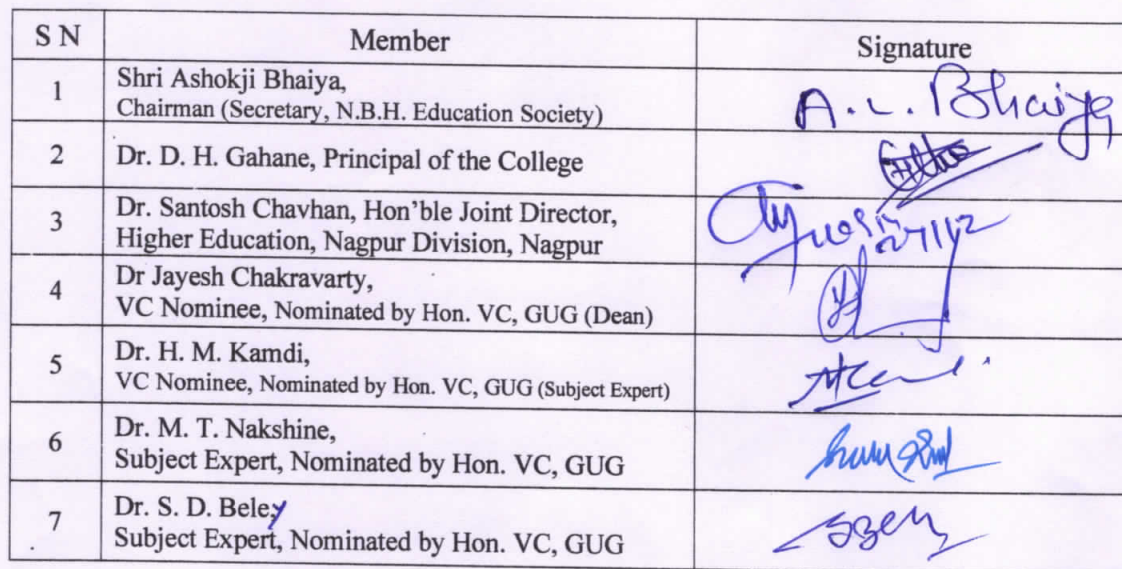 S N Member Signature
1 Shri Ashokji Bhaiya,
Chairman (Secretary, N.B.H. Education Society) A. L. Bhaiya
2 Dr. D. H. Gahane, Principal of the College
3 Dr. Santosh Chavhan, Hon'ble Joint Director,
Higher Education, Nagpur Division, Nagpur
4 Dr Jayesh Chakravarty,
VC Nominee, Nominated by Hon. VC, GUG (Dean)
5 Dr. H. M. Kamdi,
VC Nominee, Nominated by Hon. VC, GUG (Subject Expert)
6 Dr. M. T. Nakshine,
Subject Expert, Nominated by Hon. VC, GUG
7 Dr. S. D. Beley
Subject Expert, Nominated by Hon. VC, GUG